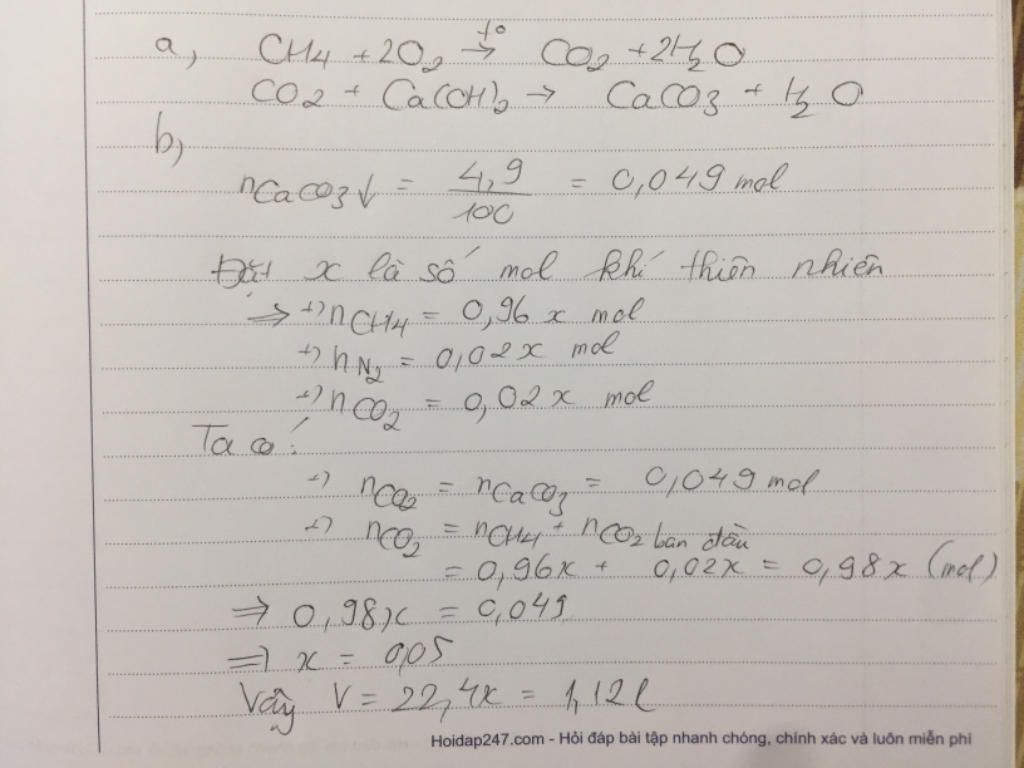 a, CH4 + 2O2 →t° CO2 + 2H2O
CO2 + Ca(OH)2 → CaCO3 + H2O
b,
nCaCO3↓ = 4,9/100 = 0,049 mol
Đặt x là số mol khí thiên nhiên
⇒ +) nCH4 = 0,96 x mol
+) nN2 = 0,02x mol
+) nCO2 = 0,02x mol
Ta có:
+) nCO2 = nCaCO3 = 0,049 mol
+) nCO2 = nCH4 + nCO2 ban đầu
= 0,96x + 0,02x = 0,98x (mol)
⇒ 0,98x = 0,049
⇒ x = 0,05
Vậy V = 22,4x = 1,12l
Hoidap247.com - Hỏi đáp bài tập nhanh chóng, chính xác và luôn miễn phí